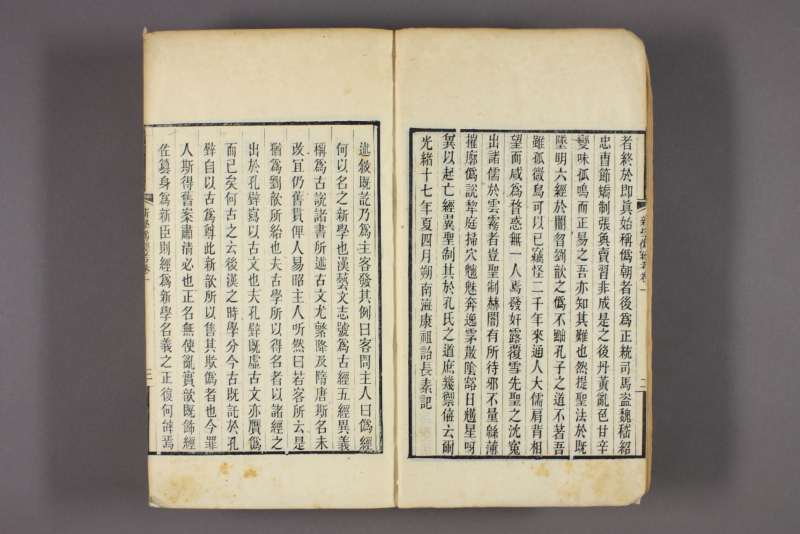 者終於即眞始稱僞朝者後爲正統司馬盗魏嵇紹
忠曹節矯制張奐賣習非成是之後丹黃亂色甘辛
變味孤鳴而正易之吾亦知其難也然提聖法於既
墜明六經於闇曶劉歆之僞不黜孔子之道不著吾
雖孤微烏可以已竊怪二千年來通人大儒肩背相
望而咸爲瞀惑無一人焉發奸露覆雪先聖之沈寃
出諸儒於雲霧者豈聖制赫闇有所待邪不量緜薄
摧廓僞說犂庭掃穴魑魅奔逸雺散陰豁日𤓰星呀
冀以起亡經翼聖制其於孔氏之道庶幾禦侮云爾
光緒十七年夏四月朔南海康祖詒長素記
述敍既訖乃爲主客發其例曰客問主人曰僞經
何以名之新學也漢藝文志號爲古經五經異義
稱爲古說諸書所述古文尤繁降及隋唐斯名未
改宜仍舊貫俾人易昭主人听然曰若客所云是
猶爲劉歆所紿也夫古學所以得名者以諸經之
出於孔壁寫以古文也夫孔壁既虛古文亦贋僞
而已矣何古之云後漢之時學分今古既託於孔
壁自以古爲尊此新歆所以售其欺僞者也今罪
人斯得舊案肅清必也正名無使亂實歆既飾經
佐篡身爲新臣則經爲新學名義之正復何辭焉